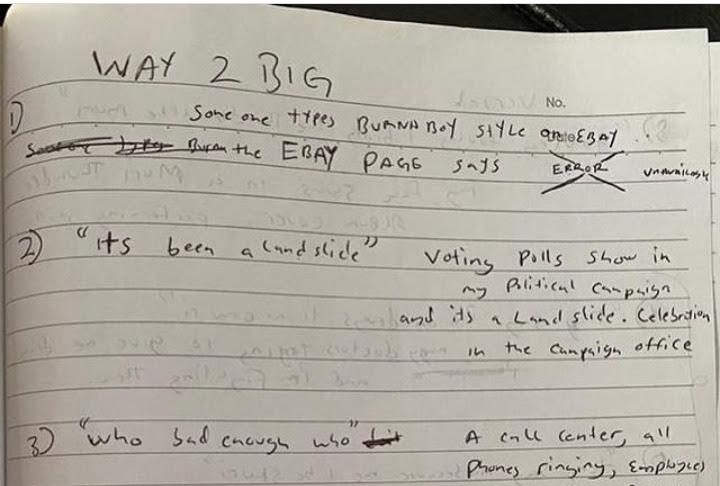 WAY 2 BIG
No.
1) Someone types BURNA BOY STYLE on EBAY ..
But on the EBAY PAGE says ERROR
2) "its been a landslide" Voting Polls show in
my Political Campaign
and its a Landslide. Celebration
in the campaign office
3) "who bad enough who" A call center, all
phones ringing, Employees